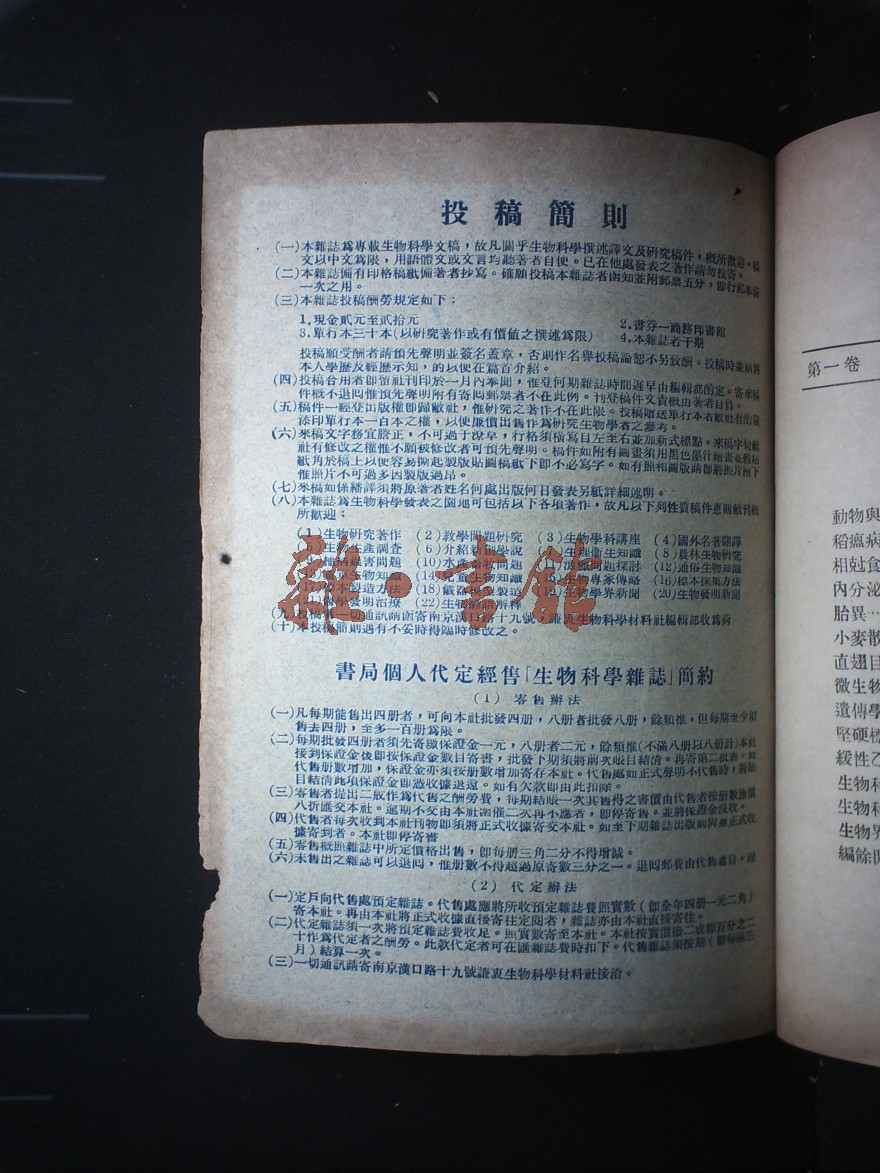 投稿簡則
(一)本雜誌爲專載生物科學文稿，故凡關乎生物科學撰述譯文及硏究稿件，槪所歡迎。
文以中文爲限，用語體文或文言均聽著者自便。已在他處發表之著作請勿投寄。
(二)本雜誌備有印格稿紙備著者抄寫。確願投稿本雜誌者函知並附郵票五分，卽行郵奉
一次之用。
(三)本雜誌投稿酬勞規定如下：
1.現金貳元至貳拾元
2.書劵—商務印書館
3.單行本三十本(以硏究著作或有價値之撰述爲限)
4.本雜誌若干期
投稿願受酬者請預先聲明並簽名蓋章，否則作名譽投稿論恕不另致酬。投稿時並祈將
本人學歷及經歷示知，的以便在篇首介紹。
(四)投稿合用者卽留社刊印於一月內奉聞，惟登何期雜誌時間遲早由編輯部酌定。寄來稿
件槪不退囘惟預先聲明附有寄囘郵票者不在此例。刊登稿件文責槪由著者自負。
(五)稿件一經登出版權卽歸敝社，惟硏究之著作不在此限。投稿贈送單行本者敝社有的量
添印單行本一百本之權，以便廉價出售作爲硏究生物學者之參考。
(六)來稿文字務宜謄正，不可過于潦草，行格須橫寫自左至右並加新式標點。來稿字句敝
社有修改之權惟不願被修改者可預先聲明。稿件如附有圖畫須用黑色墨汁繪畫並粘
紙角於稿上以便容易撕起製版貼圖稿紙下卽不必寫字。如有照相圖版請卽將照片附下
惟照片不可過多因製版過昂。
(七)來稿如係繙譯須將原著者姓名何處出版何日發表另紙詳細述明。
(八)本雜誌爲生物科學發表之園地可包括以下各項著作，故凡以下列性質稿件惠賜敝刊槪
所歡迎：
(1)生物硏究著作 (2)敎學問題硏究 (3)生物學科講座 (4)國外名著翻譯
(5)生物生產調查 (6)介紹新開學說 (7)生理衞生知識 (8)農林生物硏究
病蟲害問題 (10)水產畜牧問題 問題探討 (12)通俗生物知識
生物知識 (14)兒童生物知識 生物專家傳略 (16)標本採集方法
本製造方法 (18)儀器 製造 生物學界新聞 (20)生物發明新聞
發明治療 (22)生物 解釋
(九)投稿者一切通訊請函寄南京漢口路十九號，謙衷生物科學材料社編輯部收爲荷
(十)本投稿簡則遇有不妥時得臨時修改之。
書局個人代定經售「生物科學雜誌」簡約
(1) 寄售辦法
(一)凡每期能售出四册者，可向本社批發四册，八册者批發八册，餘類推，但每期至少須
售去四册，至多一百册爲限。
(二)每期批發四册者須先寄繳保證金一元，八册者二元，餘類推(不滿八册以八册計)本社
接到保證金後卽按保證金數目寄書，批發下期須將前次賬目結淸。再寄第二批書。如
代售册數增加，保證金亦須按册數增加寄存本社。代售處如正式聲明不代售時，將賬
目結淸此項保證金卽憑收據退還。如有欠款卽由此扣除。
(三)寄售者提出二成作爲代售之酬勞費，每期結賬一次其售得之書價由代售者按册數原價
八折匯交本社。逾期不交由本社函催二次再不小應者，卽停寄售。並將保證金沒收。
(四)代售者每次收到本社刊物卽須將正式收據寄交本社。如至下期雜誌出版 正式收
據寄到者。本社卽停寄書
(五)零售槪照雜誌中所定價格出售，卽每册三角二分不得增減。
(六)未售出之雜誌可以退囘，惟册數不得超過原寄數三分之一。退囘郵費由代售者自
(2) 代定辦法
(一)定戶向代售處預定雜誌。代售處應將所收預定雜誌費照實數(卽全年四册一元二角)
寄本社。再由本社將正式收據直接寄往定閱者，雜誌亦由本社直接寄往。
(二)代定雜誌須一次將預定雜誌費收足。照實數寄至本社。本社按實價撥二成卽百分之二
十作爲代定者之酬勞。此款代定者可在匯雜誌費時扣下。代售雜誌須按期(卽每隔三
月)結算一次。
(三)一切通訊請寄南京漢口路十九號謙衷生物科學材料社接洽。
雜·書館
第一卷
動物與
稻瘟病
相尅食
內分泌
胎異…
小麥散
直翅目
微生物
遺傳學
堅硬標
緩性乙
生物科
生物科
生物界
編餘閒